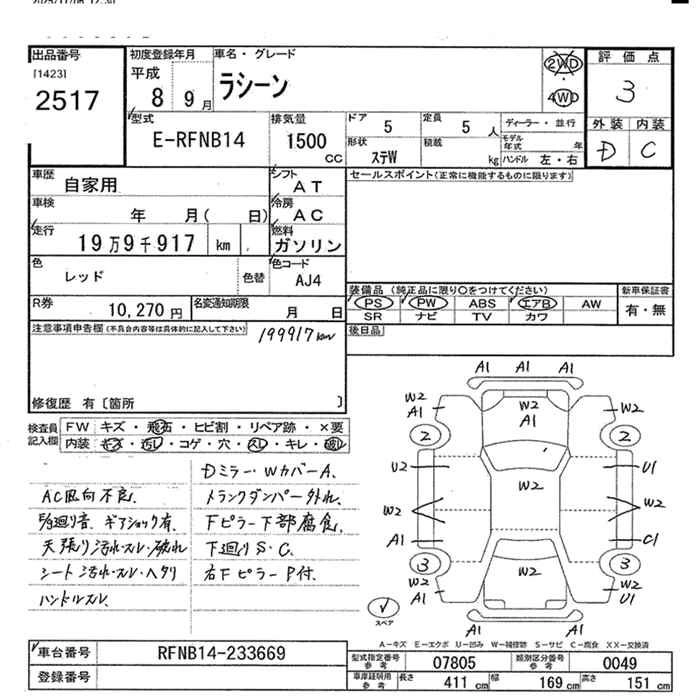 出品番号
[1423]
2517
初度登録年月
平成
8 9月
車名・グレード
ラシーン
2WD
・
4WD
評価点
3
外装 内装
D C
型式
E-RFNB14
排気量
1500
CC
ドア
5
定員
5 人
ディーラー・並行
形状
ステW
積載
kg
モデル年式 年
ハンドル 左・右
車歴
自家用
シフト
AT
車検
年 月( 日)
冷房
AC
走行
19万9千917 km
燃料
ガソリン
色
レッド
色替
色コード
AJ4
R券
10,270円
名変通知期限
月 日
セールスポイント(正常に機能するものに限ります)
装備品 (純正品に限り○をつけてください)
PS PW ABS エアB AW
SR ナビ TV カワ
新車保証書
有・無
後日品
注意事項申告欄 (不具合内容等は具体的に記入して下さい)
199917km
修復歴 有〔箇所 〕
検査員
記入欄
FW キズ・飛石・ヒビ割・リペア跡・×要
内装 キズ・汚レ・コゲ・穴・スレ・キレ・破レ
Dミラー・WカバーA.
AC風向不良. トランクダンパー外れ.
ギアショック有. Fピラー下部腐食.
天張り汚れ・スレ・破れ 下廻りS・C.
シート汚れ・スレ・ヘタリ 右Fピラー P付.
ハンドルスレ.
A1 A1 A1
W2
A1
W2
A1
W2
2
2
U2
W2
U1
W2
W2
A1
C1
3
3
W2
W2
A1
W2
U1
A1 A1 A1
スペア
A-キズ E-エクボ U-凹み W-補修跡 S-サビ C-腐食 XX-交換済
車台番号
RFNB14-233669
登録番号
型式指定番号
参考
07805
類別区分番号
参考
0049
車庫証明用
参考
長さ
411 cm
幅
169 cm
高さ
151 cm